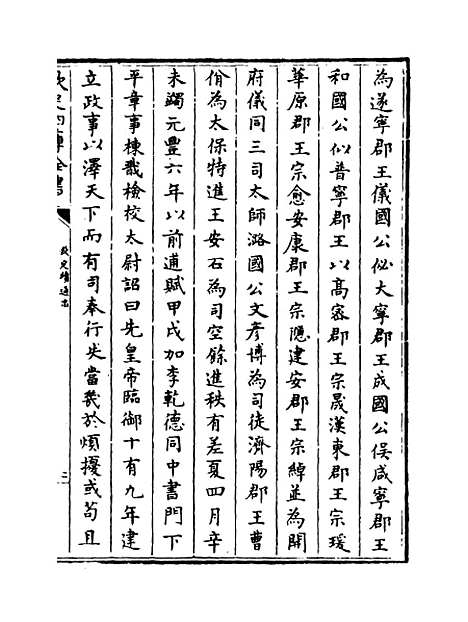 為遂寧郡王儀國公佖大寧郡王成國公俁咸寧郡王
和國公似普寧郡王以髙宻郡王宗晟漢東郡王宗瑗
華原郡王宗愈安康郡王宗隱建安郡王宗綽並為開
府儀同三司太師潞國公文彦博為司徒濟陽郡王曹
佾為太保特進王安石為司空餘進秩有差夏四月辛
未蠲元豐六年以前逋賦甲戌加李乾德同中書門下
平章事棟戩檢校太尉詔曰先皇帝臨御十有九年建
立政事以澤天下而有司奉行失當㡬於煩擾或茍且
欽定四庫全書
欽定續通志
三